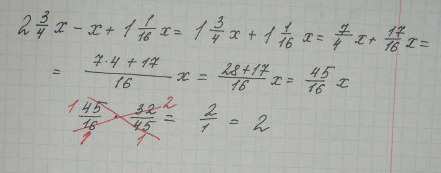 2 3/4 x - x + 1 1/16 x = 1 3/4 x + 1 1/16 x = 7/4 x + 17/16 x =
= (7·4 + 17)/16 x = (28+17)/16 x = 45/16 x
45/16 · 32/45 = 2/1 = 2
1 2
1 1